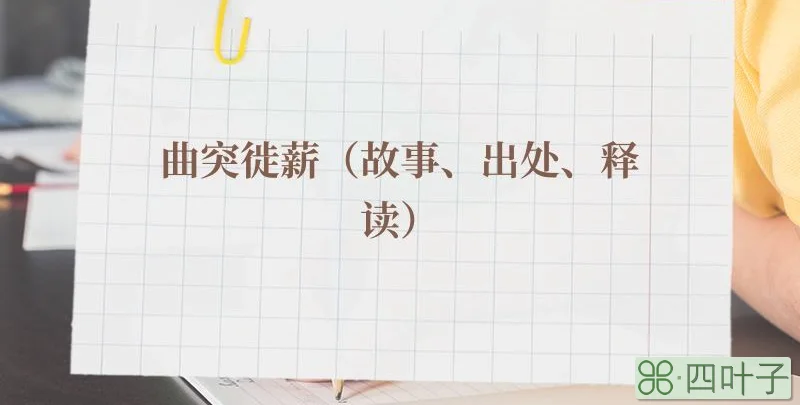 曲突徙薪（故事、出处、释
读）
四叶子